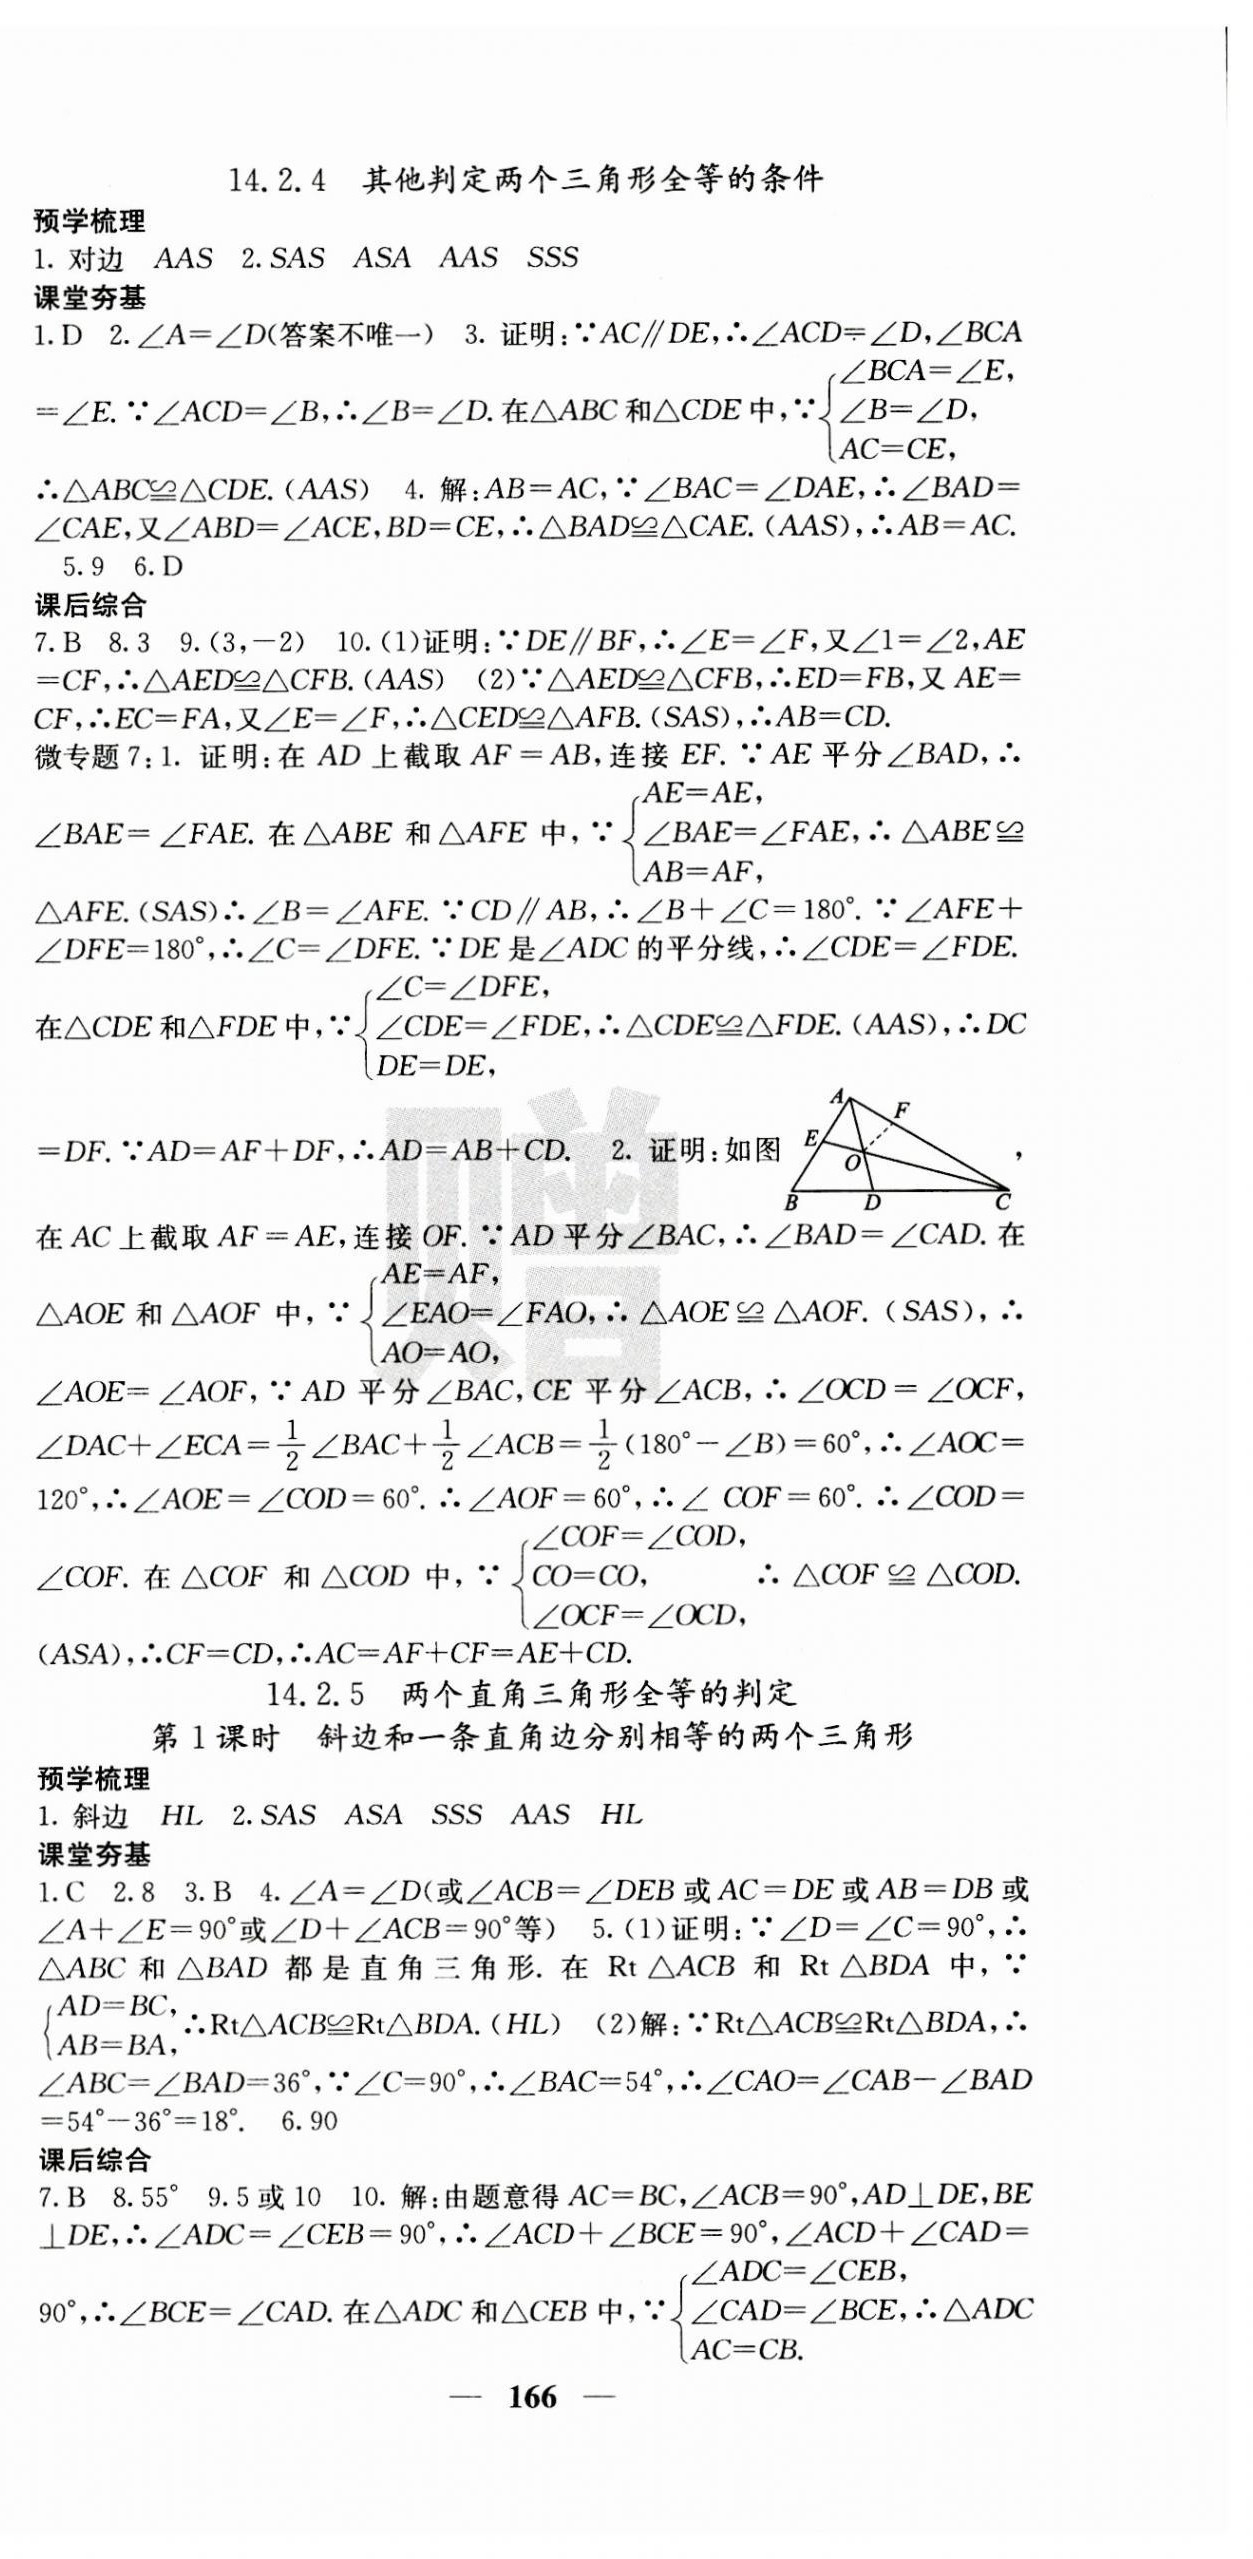 14.2.4 其他判定两个三角形全等的条件
预学梳理
1. 对边 AAS 2. SAS ASA AAS SSS
课堂夯基
1. D 2. ∠A=∠D(答案不唯一) 3. 证明:∵AC∥DE,∴∠ACD=∠D,∠BCA
∠BCA=∠E,
=∠E. ∵∠ACD=∠B,∴∠B=∠D. 在△ABC和△CDE中,∵{∠B=∠D,
AC=CE,
∴△ABC≌△CDE. (AAS) 4. 解:AB=AC,∵∠BAC=∠DAE,∴∠BAD=
∠CAE,又∠ABD=∠ACE,BD=CE,∴△BAD≌△CAE. (AAS),∴AB=AC.
5. 9 6. D
课后综合
7. B 8. 3 9. (3,-2) 10. (1)证明:∵DE∥BF,∴∠E=∠F,又∠1=∠2,AE
=CF,∴△AED≌△CFB. (AAS) (2)∵△AED≌△CFB,∴ED=FB,又AE=
CF,∴EC=FA,又∠E=∠F,∴△CED≌△AFB. (SAS),∴AB=CD.
微专题7:1. 证明:在AD上截取AF=AB,连接EF. ∵AE平分∠BAD,∴
AE=AE,
∠BAE=∠FAE. 在△ABE和△AFE中,∵{∠BAE=∠FAE,∴△ABE≌
AB=AF,
△AFE. (SAS)∴∠B=∠AFE. ∵CD∥AB,∴∠B+∠C=180°. ∵∠AFE+
∠DFE=180°,∴∠C=∠DFE. ∵DE是∠ADC的平分线,∴∠CDE=∠FDE.
∠C=∠DFE,
在△CDE和△FDE中,∵{∠CDE=∠FDE,∴△CDE≌△FDE. (AAS),∴DC
DE=DE,
A
F
=DF. ∵AD=AF+DF,∴AD=AB+CD. 2. 证明:如图 E ,
O
B D C
在AC上截取AF=AE,连接OF. ∵AD平分∠BAC,∴∠BAD=∠CAD. 在
AE=AF,
△AOE和△AOF中,∵{∠EAO=∠FAO,∴△AOE≌△AOF. (SAS),∴
AO=AO,
∠AOE=∠AOF,∵AD平分∠BAC,CE平分∠ACB,∴∠OCD=∠OCF,
∠DAC+∠ECA=1/2∠BAC+1/2∠ACB=1/2(180°-∠B)=60°,∴∠AOC=
120°,∴∠AOE=∠COD=60°. ∴∠AOF=60°,∴∠COF=60°. ∴∠COD=
∠COF=∠COD,
∠COF. 在△COF和△COD中,∵{CO=CO, ∴△COF≌△COD.
∠OCF=∠OCD,
(ASA),∴CF=CD,∴AC=AF+CF=AE+CD.
14.2.5 两个直角三角形全等的判定
第1课时 斜边和一条直角边分别相等的两个三角形
预学梳理
1. 斜边 HL 2. SAS ASA SSS AAS HL
课堂夯基
1. C 2. 8 3. B 4. ∠A=∠D(或∠ACB=∠DEB或AC=DE或AB=DB或
∠A+∠E=90°或∠D+∠ACB=90°等) 5. (1)证明:∵∠D=∠C=90°,∴
△ABC和△BAD都是直角三角形. 在Rt△ACB和Rt△BDA中,∵
{AD=BC,
AB=BA, ∴Rt△ACB≌Rt△BDA. (HL) (2)解:∵Rt△ACB≌Rt△BDA,∴
∠ABC=∠BAD=36°,∵∠C=90°,∴∠BAC=54°,∴∠CAO=∠CAB-∠BAD
=54°-36°=18°. 6. 90
课后综合
7. B 8. 55° 9. 5或10 10. 解:由题意得AC=BC,∠ACB=90°,AD⊥DE,BE
⊥DE,∴∠ADC=∠CEB=90°,∴∠ACD+∠BCE=90°,∠ACD+∠CAD=
∠ADC=∠CEB,
90°,∴∠BCE=∠CAD. 在△ADC和△CEB中,∵{∠CAD=∠BCE,∴△ADC
AC=CB.
— 166 —
赠